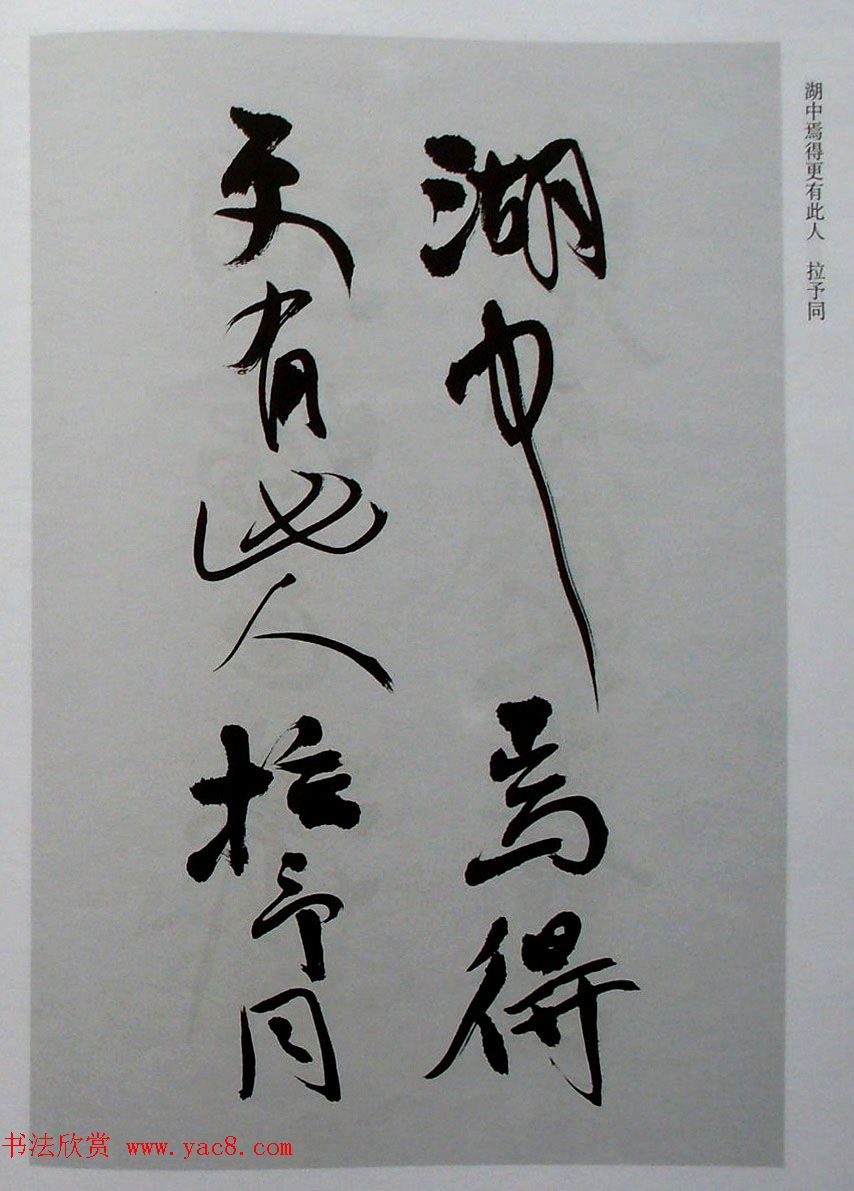 湖中焉得更有此人 拉予同
湖中焉得
更有此人拉予同
书法欣赏 www.yac8.com